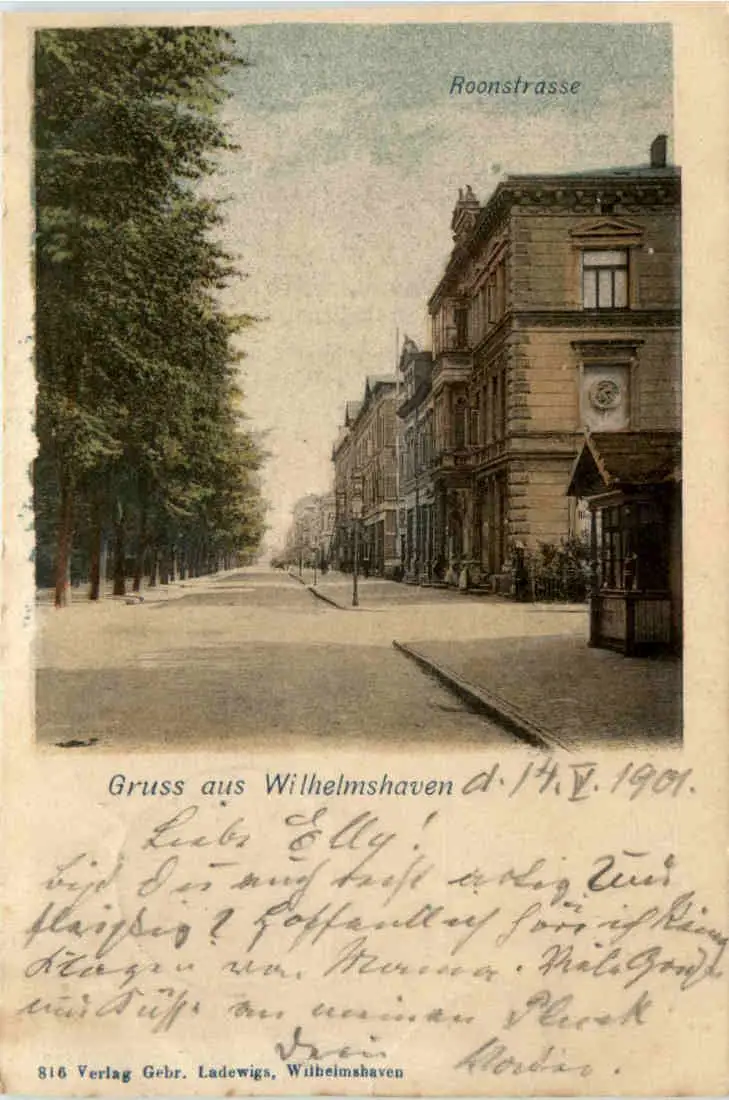 Roonstrasse
Gruss aus Wilhelmshaven d. 14. V. 1901.
Liebe Elly!
bist Du auch recht artig und
fleißig? Hoffentlich höre ich keine
Klagen von Mama. Viele Grüße
und Küsse an meinen
Dein
816 Verlag Gebr. Ladewigs, Wilhelmshaven